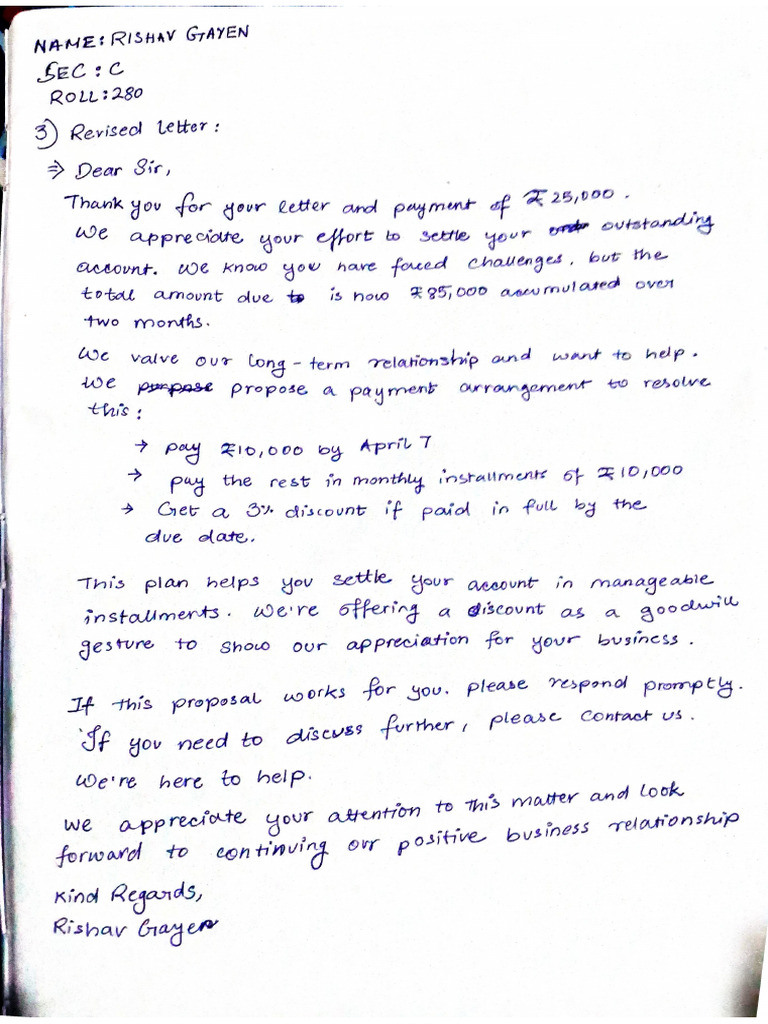 NAME: RISHAV GAYEN
SEC : C
ROLL: 280
3) Revised letter :
⇒ Dear Sir,
Thank you for your letter and payment of ₹25,000.
We appreciate your effort to settle your outstanding
account. We know you have faced challenges, but the
total amount due is now ₹85,000 accumulated over
two months.
We valve our long-term relationship and want to help.
We propose a payment arrangement to resolve
this :
→ pay ₹10,000 by April 7
→ pay the rest in monthly installments of ₹10,000
→ Get a 3% discount if paid in full by the
due date.
This plan helps you settle your account in manageable
installments. We're offering a discount as a goodwill
gesture to show our appreciation for your business.
If this proposal works for you. please respond promptly.
If you need to discuss further, please contact us.
We're here to help.
We appreciate your attention to this matter and look
forward to continuing our positive business relationship
Kind Regards,
Rishav Gayen